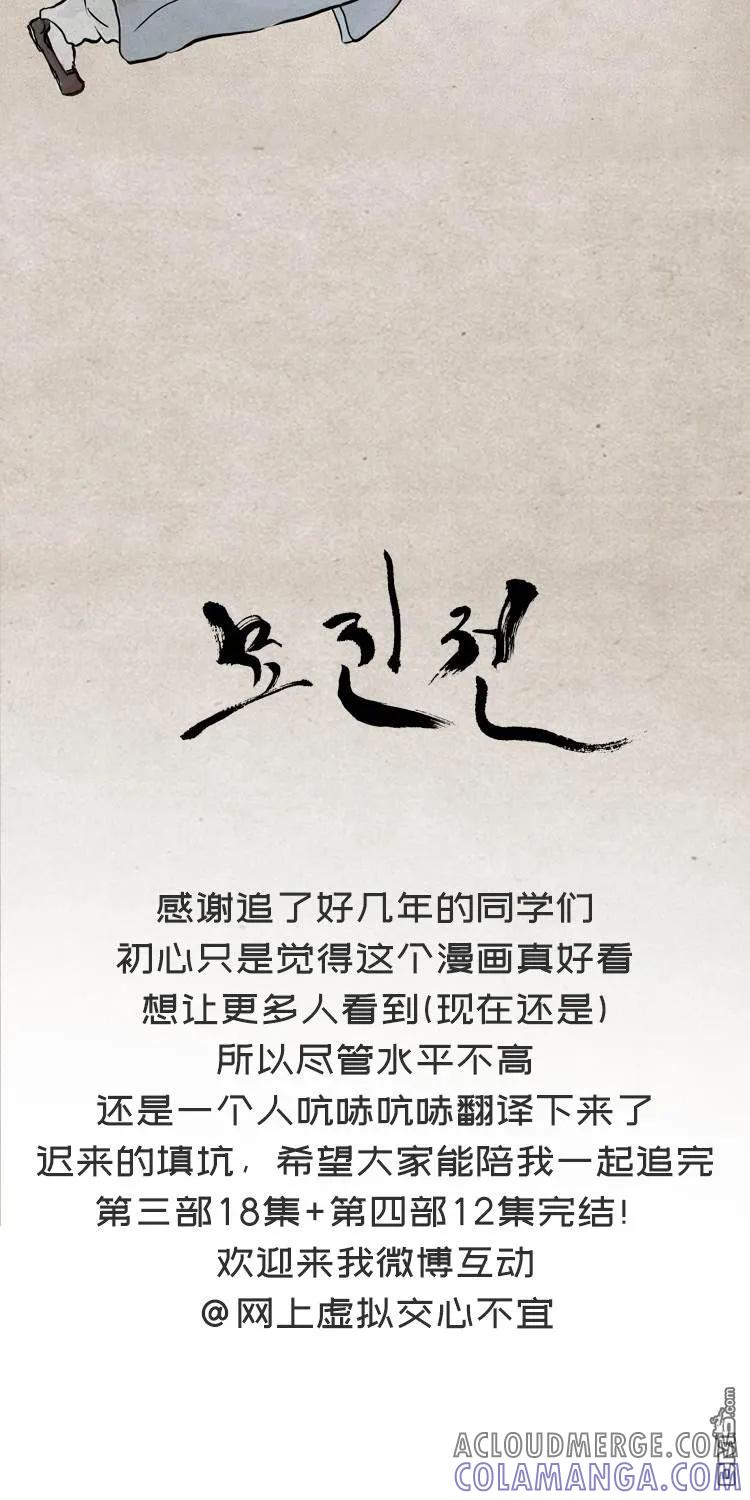 묘진전
感谢追了好几年的同学们
初心只是觉得这个漫画真好看
想让更多人看到(现在还是)
所以尽管水平不高
还是一个人吭哧吭哧翻译下来了
迟来的填坑，希望大家能陪我一起追完
第三部18集+第四部12集完结！
欢迎来我微博互动
@网上虚拟交心不宜
ACLOUDMERGE.COM
COLAMANGA.COM